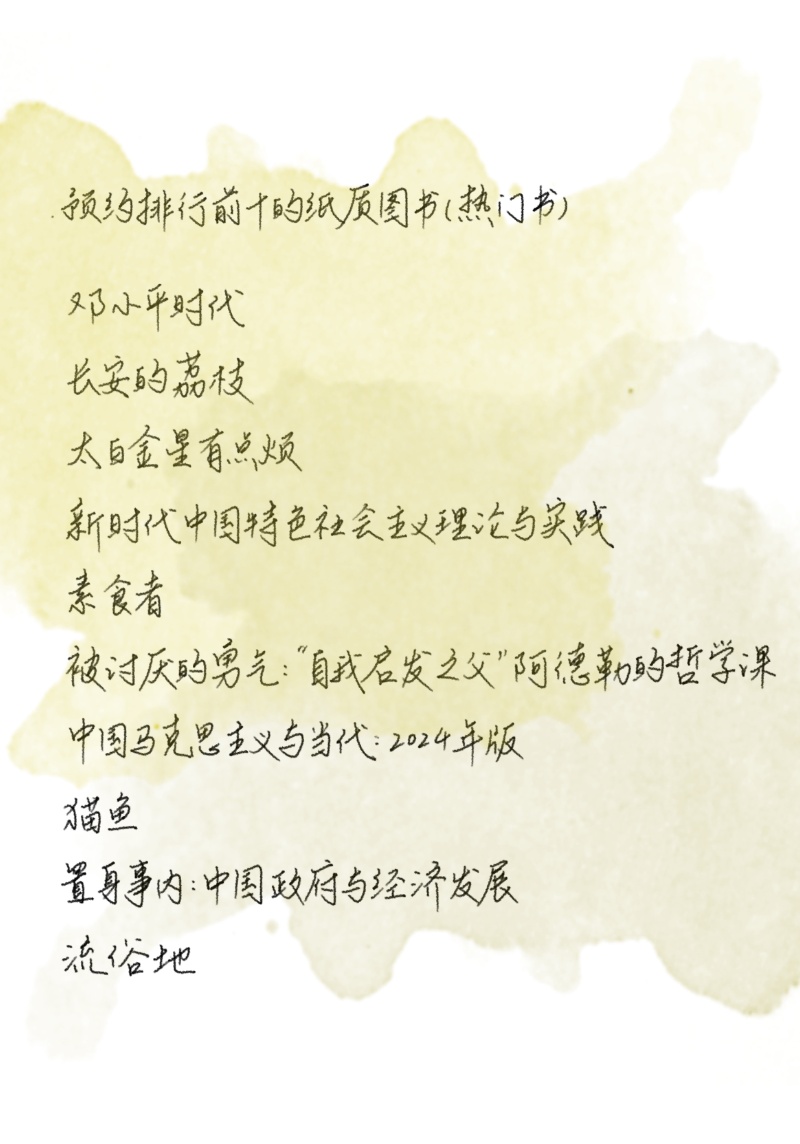 预约排行前十的纸质图书(热门书)
邓小平时代
长安的荔枝
太白金星有点烦
新时代中国特色社会主义理论与实践
素食者
被讨厌的勇气:“自我启发之父”阿德勒的哲学课
中国马克思主义与当代:2024年版
猫鱼
置身事内:中国政府与经济发展
流俗地